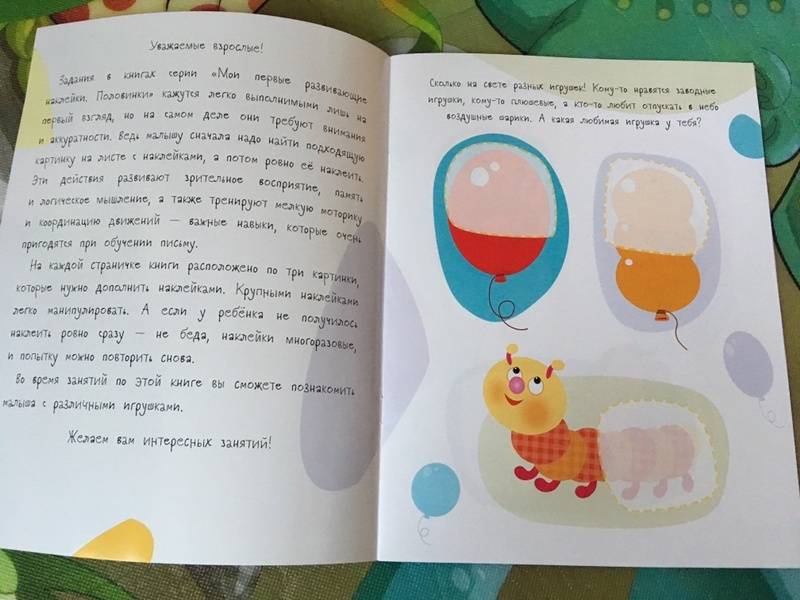 Уважаемые взрослые!
Задания в книгах серии «Мои первые развивающие
наклейки. Половинки» кажутся легко выполнимыми лишь на
первый взгляд, но на самом деле они требуют внимания
и аккуратности. Ведь малышу сначала надо найти подходящую
картинку на листе с наклейками, а потом ровно её наклеить.
Эти действия развивают зрительное восприятие, память
и логическое мышление, а также тренируют мелкую моторику
и координацию движений — важные навыки, которые очень
пригодятся при обучении письму.
На каждой страничке книги расположено по три картинки,
которые нужно дополнить наклейками. Крупными наклейками
легко манипулировать. А если у ребёнка не получилось
наклеить ровно сразу — не беда, наклейки многоразовые,
и попытку можно повторить снова.
Во время занятий по этой книге вы сможете познакомить
малыша с различными игрушками.
Желаем вам интересных занятий!
Сколько на свете разных игрушек! Кому-то нравятся заводные
игрушки, кому-то плюшевые, а кто-то любит отпускать в небо
воздушные шарики. А какая любимая игрушка у тебя?